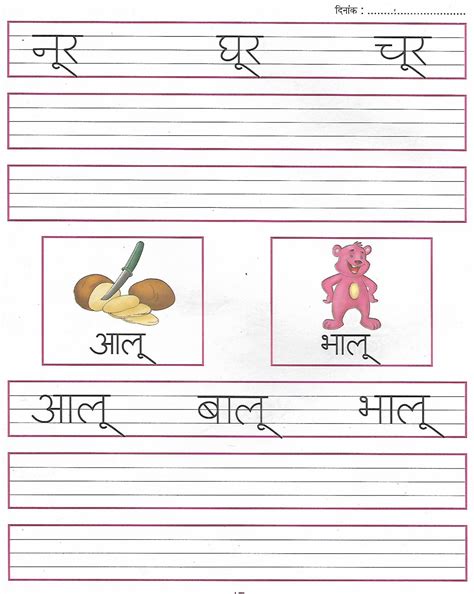 दिनांक : ..............:...................
नूर घूर चूर
आलू भालू
आलू बालू भालू